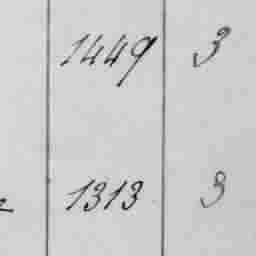 1449 3
1313 3